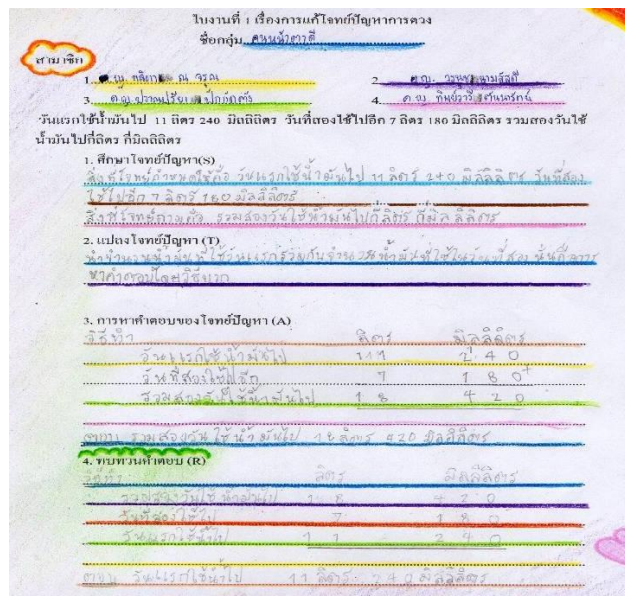 ใบงานที่ 1 เรื่องการแก้โจทย์ปัญหาการตวง
ชื่อกลุ่ม
สมาชิก
1. ณ จรูณ
2. ด.ญ.
3. ด.ญ.
4. ด.ญ.
วันแรกใช้น้ำมันไป 11 ลิตร 240 มิลลิลิตร วันที่สองใช้ไปอีก 7 ลิตร 180 มิลลิลิตร รวมสองวันใช้
น้ำมันไปกี่ลิตร กี่มิลลิลิตร
1. ศึกษาโจทย์ปัญหา(S)
สิ่งที่โจทย์กำหนดให้คือ วันแรกใช้น้ำมันไป 11 ลิตร 240 มิลลิลิตร วันที่สอง
ใช้ไปอีก 7 ลิตร 180 มิลลิลิตร
สิ่งที่โจทย์ถามคือ รวมสองวันใช้น้ำมันไปกี่ลิตร กี่มิลลิลิตร
2. แปลงโจทย์ปัญหา (T)
นำจำนวนน้ำมันที่ใช้วันแรกรวมกับจำนวนน้ำมันที่ใช้ในวันที่สอง นั่นคือการ
หาคำตอบโดยวิธีบวก
3. การหาคำตอบของโจทย์ปัญหา (A)
วิธีทำ ลิตร มิลลิลิตร
วันแรกใช้น้ำมันไป 11 2 4 0
วันที่สองใช้ไปอีก 7 1 8 0 +
รวมสองวันใช้น้ำมันไป 1 8 4 2 0
ตอบ รวมสองวันใช้น้ำมันไป 18 ลิตร 420 มิลลิลิตร
4. ทบทวนคำตอบ (R)
วิธีทำ ลิตร มิลลิลิตร
รวมสองวันใช้น้ำมันไป 1 8 4 2 0
วันที่สองใช้ไป 7 1 8 0
วันแรกใช้น้ำไป 1 1 2 4 0
ตอบ วันแรกใช้น้ำไป 11 ลิตร 240 มิลลิลิตร